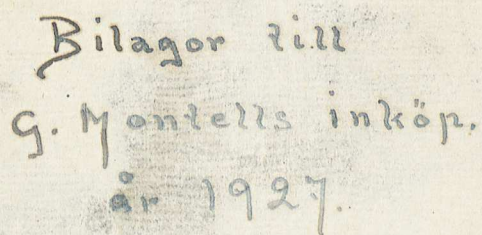 Bilagor till
G. Montells inköp.
år 1927.